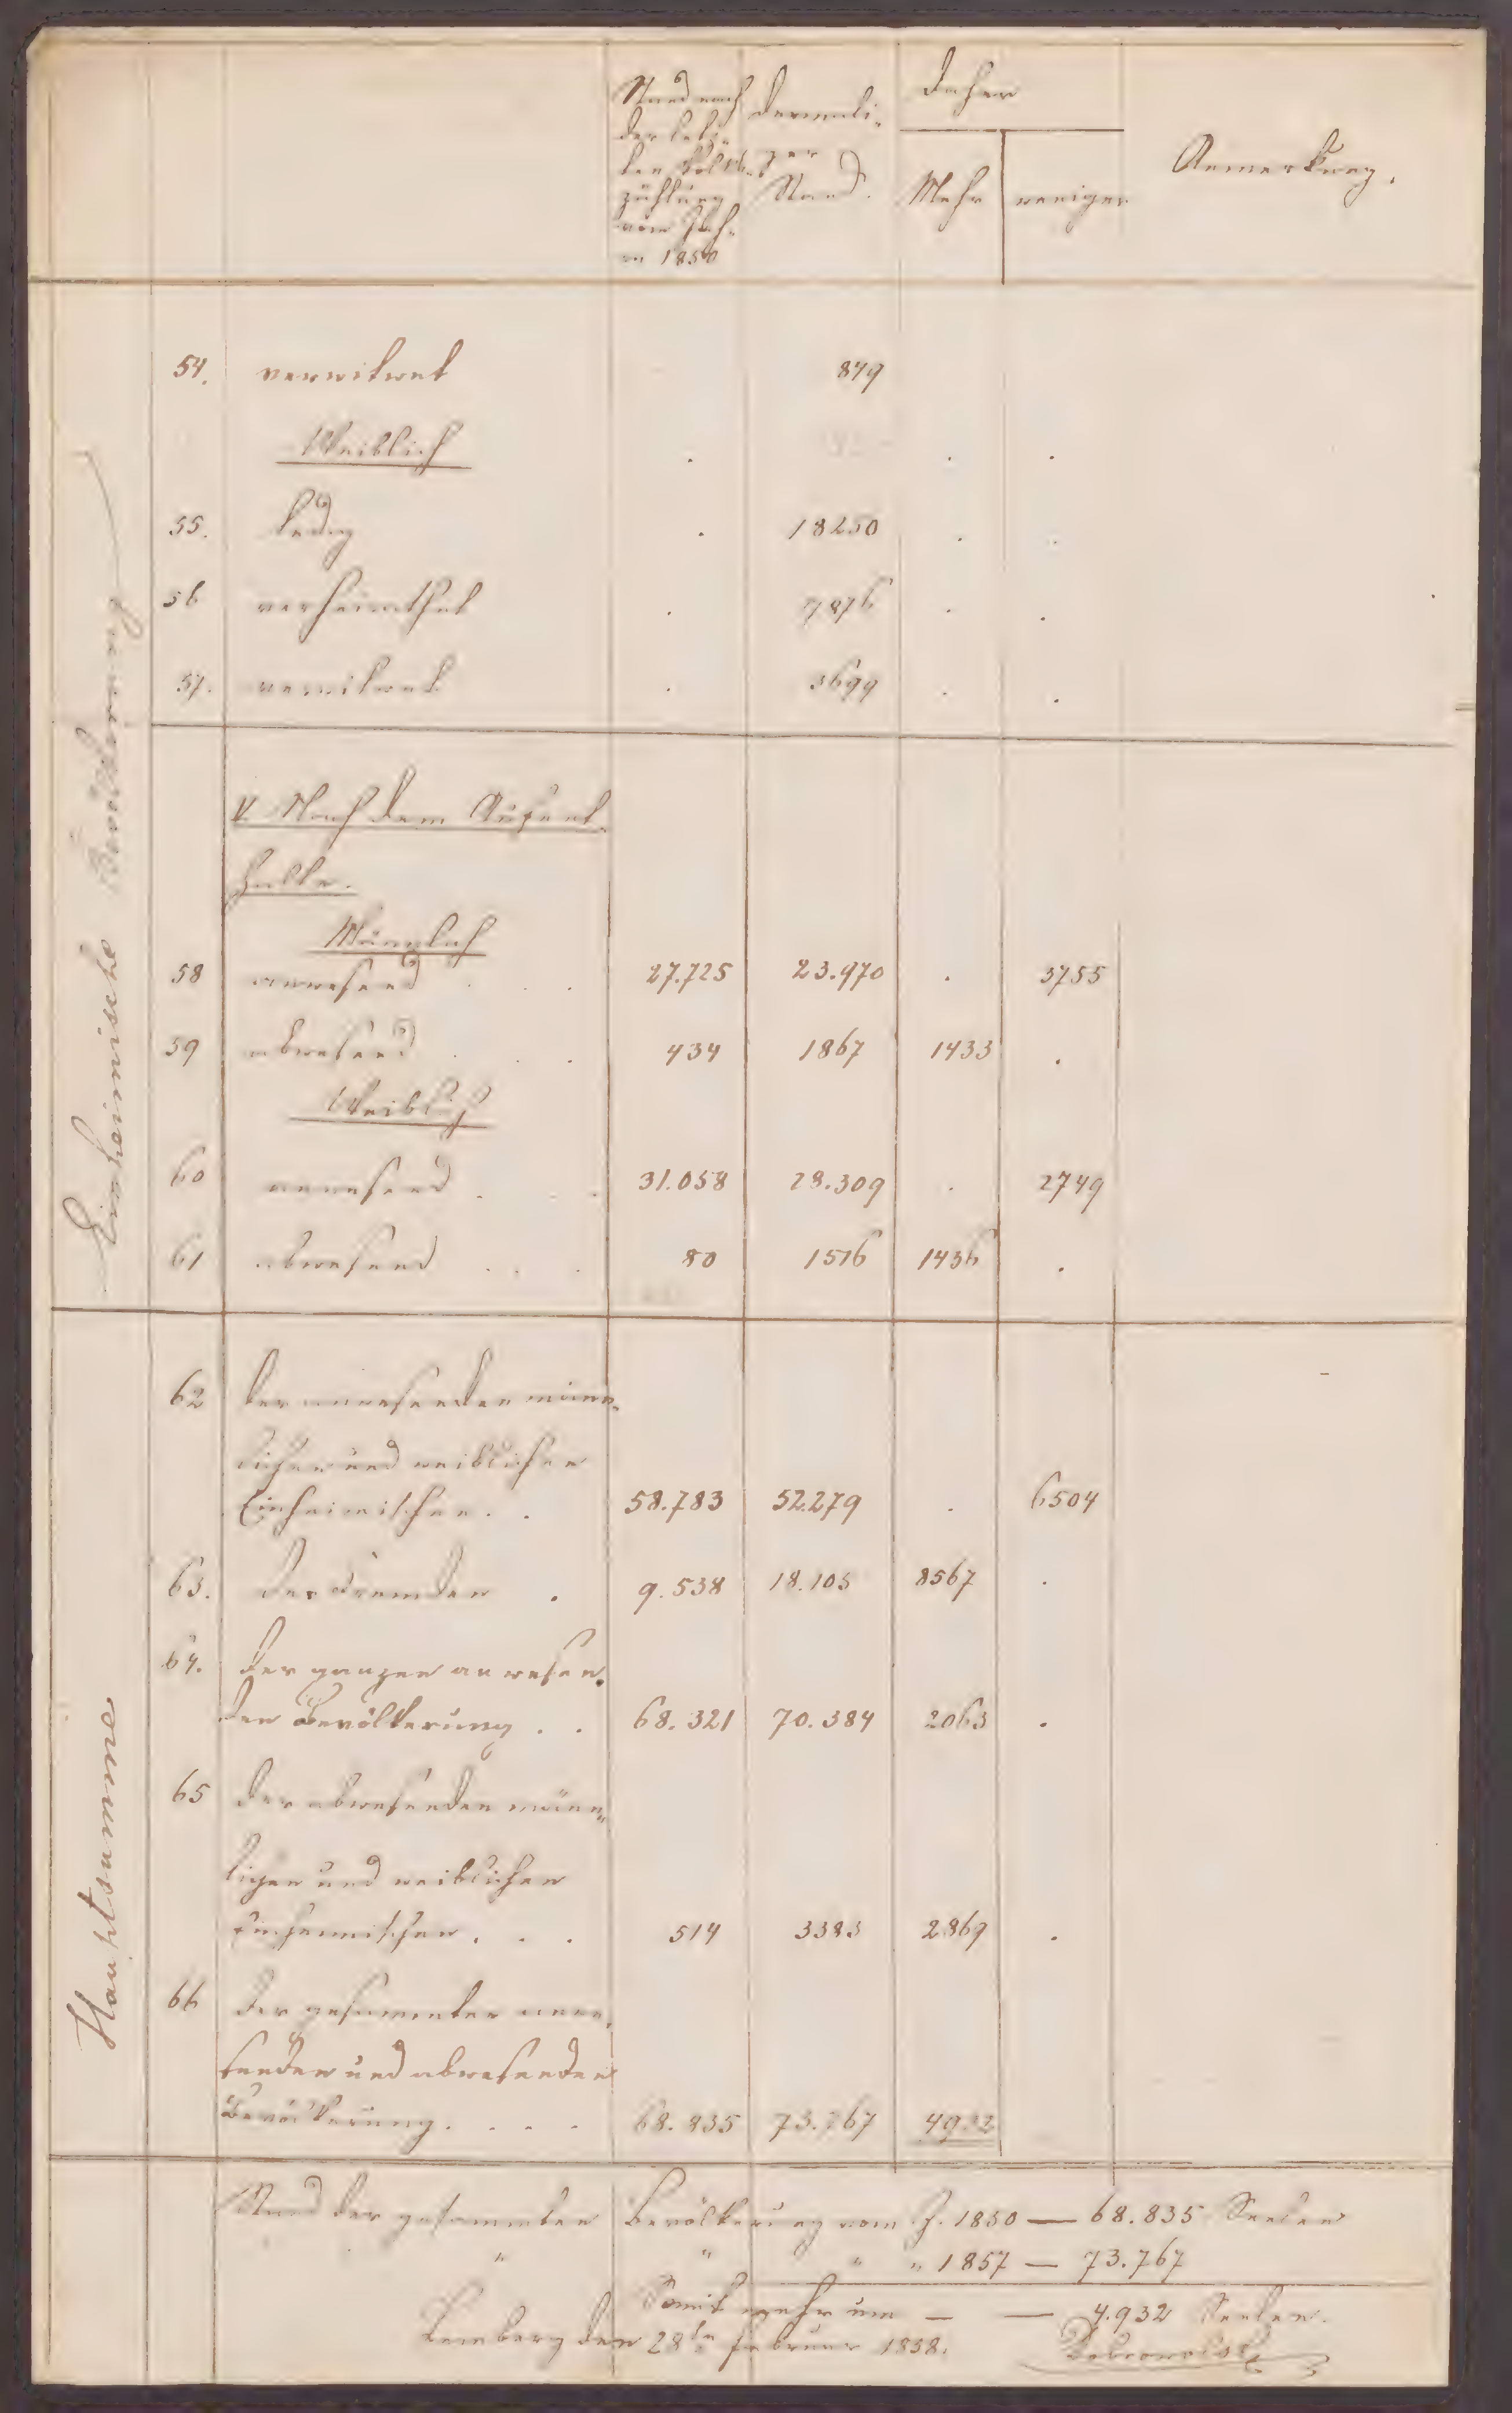 Stand nach
der letz-
ten Volks-
zählung
vom Jah-
re 1850
dermali-
ger
Stand.
Daher
Mehr
weniger
Anmerkung.
Einheimische Bevölkerung
54. verwitwet 849
Weiblich . . .
55. ledig . 18250 . .
56 verheirathet . 7876 . .
57. verwitwet . 3699 . .
V. Nach dem Aufent-
halte.
Männlich
58 anwesend . . . 27.725 23.970 . 3755
59 abwesend . . . 434 1867 1433 .
Weiblich
60 anwesend . . . 31.058 28.309 . 2749
61 abwesend . . . 80 1516 1436 .
Hauptsumme
62 der anwesenden männ-
lichen und weiblichen
Einheimischen . . 58.783 52.279 . 6504
63. der Fremden . 9.538 18.105 8567 .
64. der ganzen anwesen-
den Bevölkerung . . 68.321 70.384 2063 .
65 der abwesenden männ-
lichen und weiblichen
Einheimischen . . . 514 3383 2869 .
66 der gesammten anwe-
senden und abwesenden
Bevölkerung . . . . 68.835 73.767 4932
Stand der gesammten Bevölkerung vom J. 1850 — 68.835 Seelen
" " " " 1857 — 73.767
Somit mehr um — — 4.932 Seelen.
Lemberg den 28ten Februar 1858.
Dobrowolski